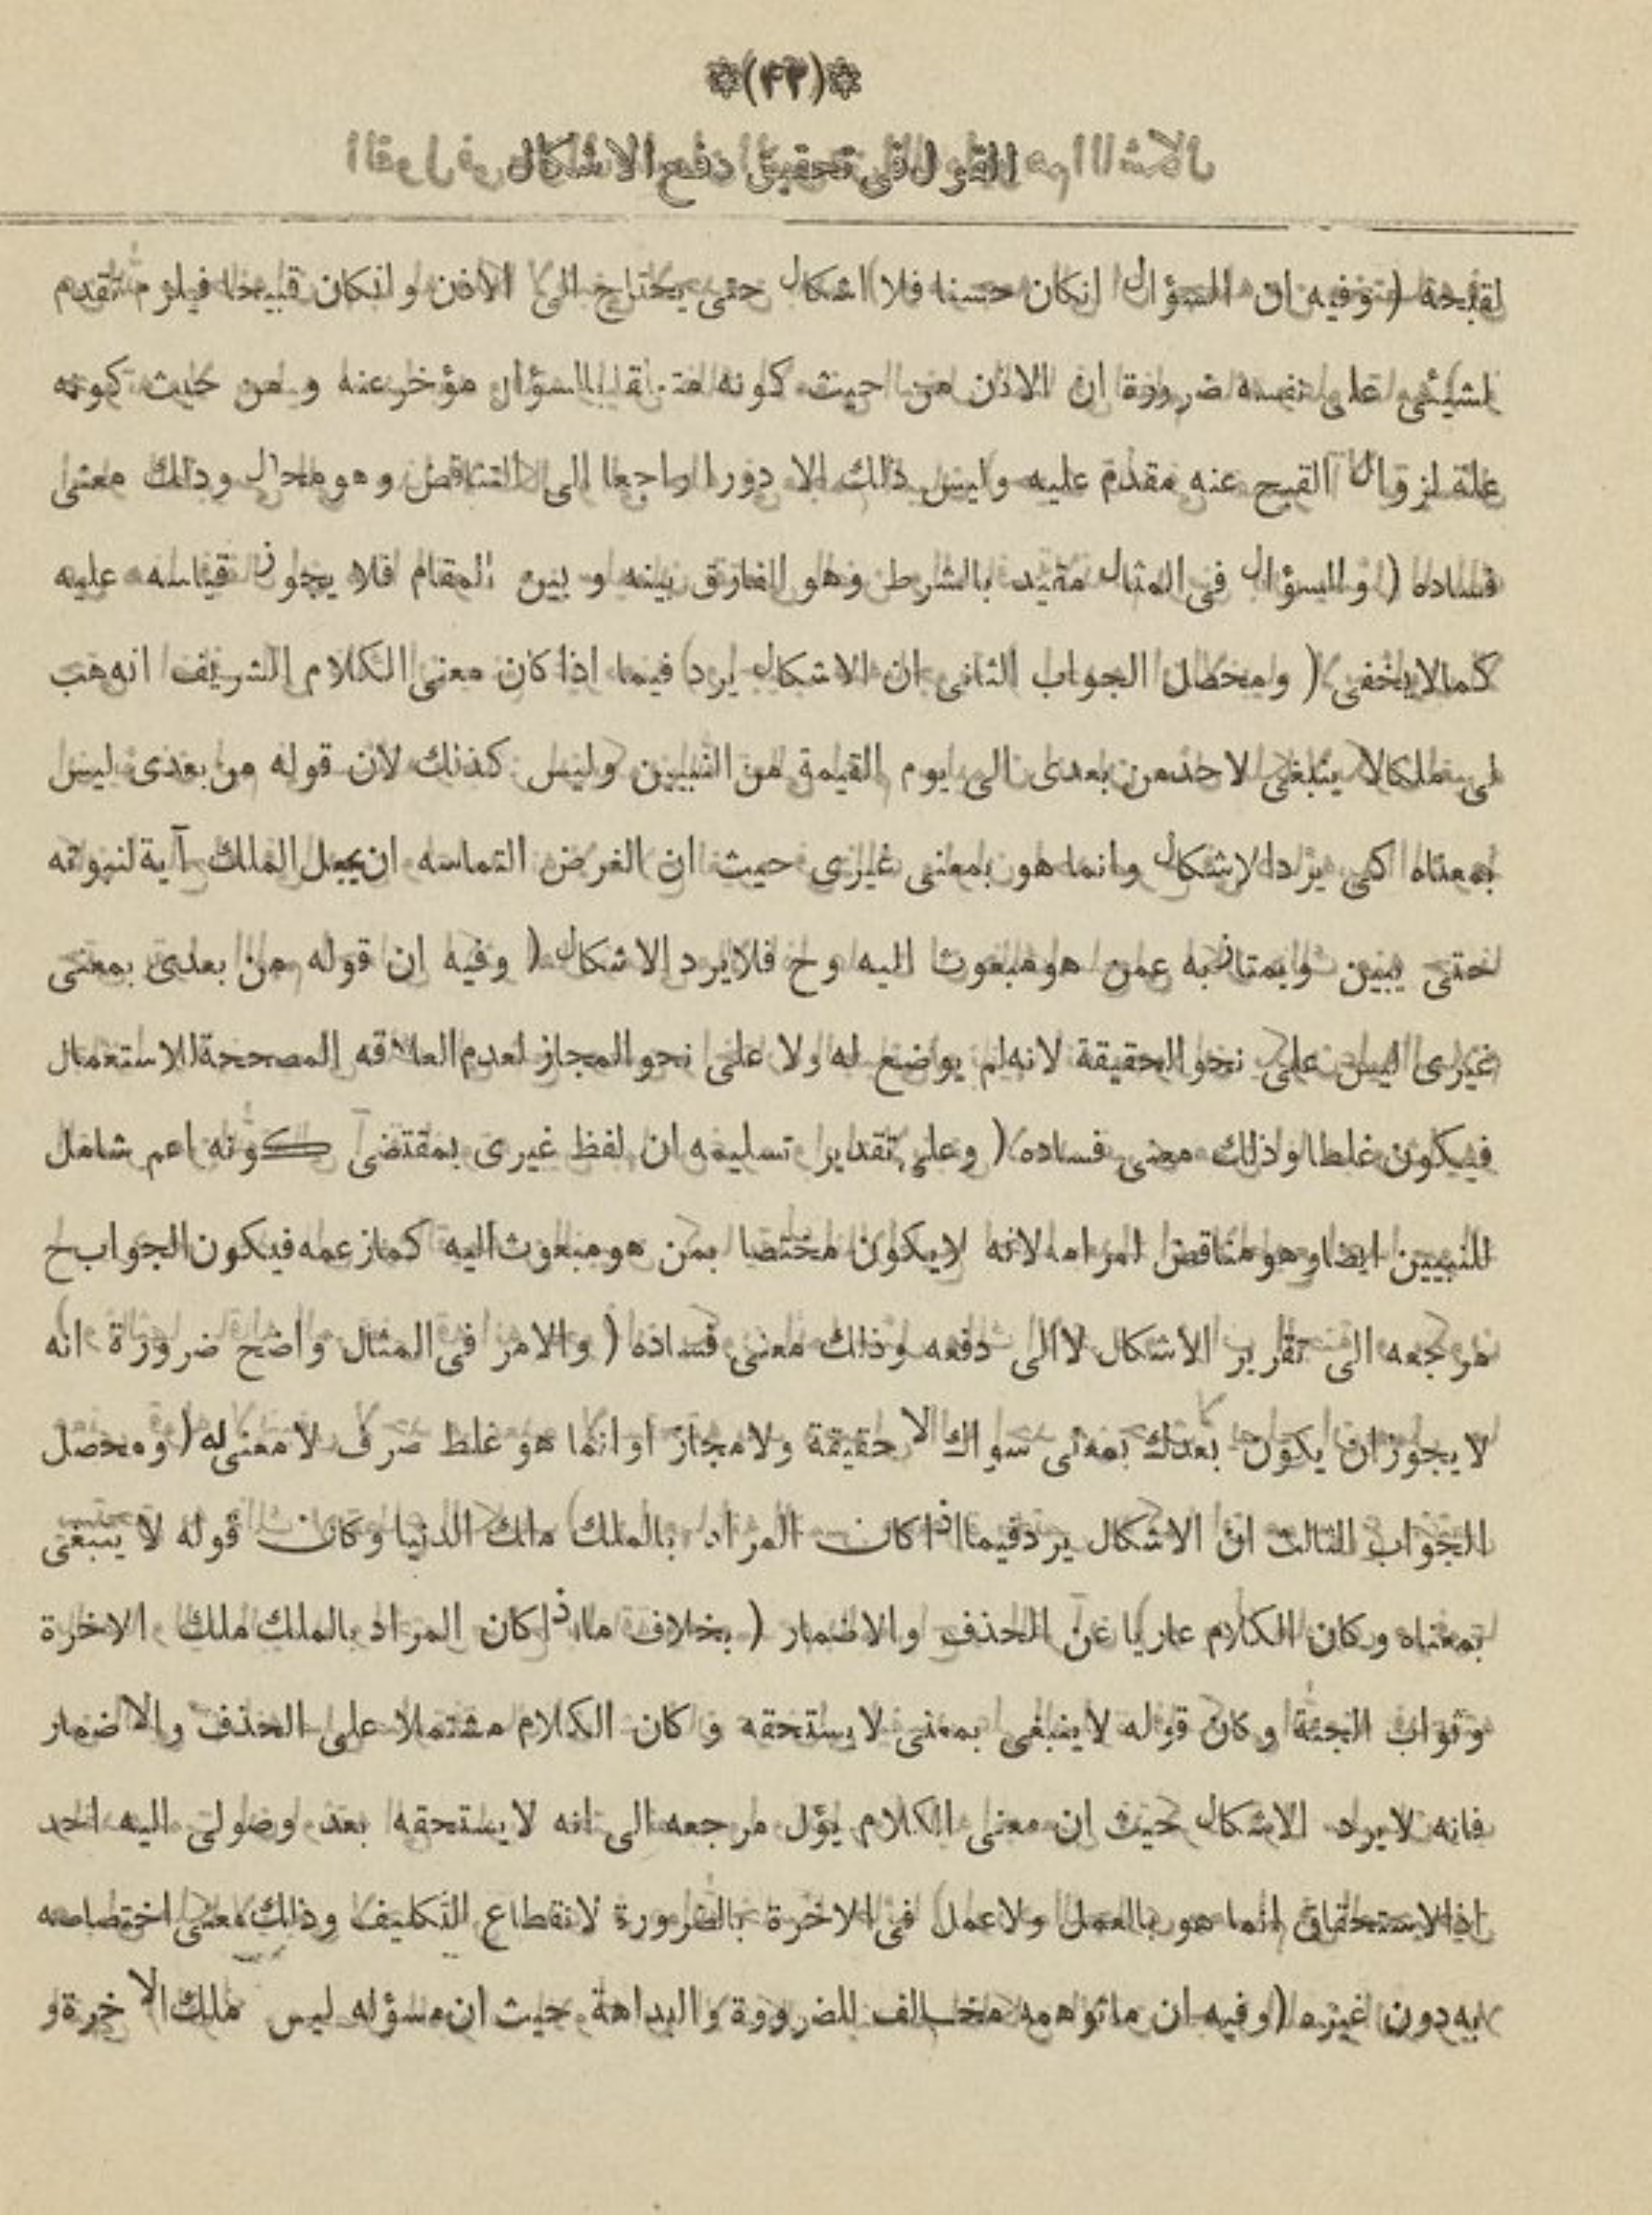 (۴۳)
القول فی تحقیق دفع الاشکال
لقبحة ( وفیه ان السؤال انکان حسنا فلا اشکال حتی یحتاج الی الاذن وانکان قبیحا فیلزم تقدم
لشیئی علی نفسه ضرورة ان الاذن من حیث کونه متعلقا بالسؤال مؤخر عنه و من حیث کونه
علة لزوال القبح عنه مقدم علیه ولیس ذلك الا دورا راجعا الی التناقض وهو محال وذلك معنی
فساده ( والسؤال فی المثال مقید بالشرط وهو الفارق بینه و بین المقام فلا یجوز قیاسه علیه
کمالا یخفی ( ومحصل الجواب الثانی ان الاشکال یرد فیما اذا کان معنی الکلام الشریف انه هب
لی ملکا لا ینبغی لاحد من بعدی الی یوم القیمة من النبیین ولیس کذلك لان قوله من بعدی لیس
بمعناه کی یرد الاشکال وانما هو بمعنی غیری حیث ان الغرض التماسه ان یجعل الملك آیة لنبوته
حتی یبین ویمتاز به عمن هو مبعوث الیه وح فلا یرد الاشکال ( وفیه ان قوله من بعدی بمعنی
غیری لیس علی نحو الحقیقة لانه لم یوضع له ولا علی نحو المجاز لعدم العلاقه المصححة للاستعمال
فیکون غلطا وذلك معنی فساده ( وعلی تقدیر تسلیمه ان لفظ غیری بمقتضی کونه اعم شامل
للنبیین ایضا وهو مناقض لمرامه لانه لا یکون مختصا بمن هو مبعوث الیه کما زعمه فیکون الجواب ح
مرجعه الی تقریر الاشکال لا الی دفعه وذلك معنی فساده ( والامر فی المثال واضح ضرورة انه
لا یجوز ان یکون بعدك بمعنی سواك لا حقیقة ولا مجاز او انما هو غلط صرف لا معنی له ( ومحصل
الجواب الثالث ان الاشکال یرد فیما اذا کان المراد بالملك ملك الدنیا وکان قوله لا ینبغی
بمعناه وکان الکلام عاریا عن الحذف والاضمار ( بخلاف ما اذا کان المراد بالملك ملك الاخرة
وثواب الجنة وکان قوله لا ینبغی بمعنی لا یستحقه و کان الکلام مشتملا علی الحذف والاضمار
فانه لا یرد الاشکال حیث ان معنی الکلام یؤل مرجعه الی انه لا یستحقه بعد وصولی الیه احد
اذ الاستحقاق انما هو بالعمل ولا عمل فی الاخرة بالضرورة لانقطاع التکلیف وذلك معنی اختصاصه
به دون غیره ( وفیه ان ماتوهمه مخالف للضرورة والبداهة حیث ان مسؤله لیس ملك الاخرة و